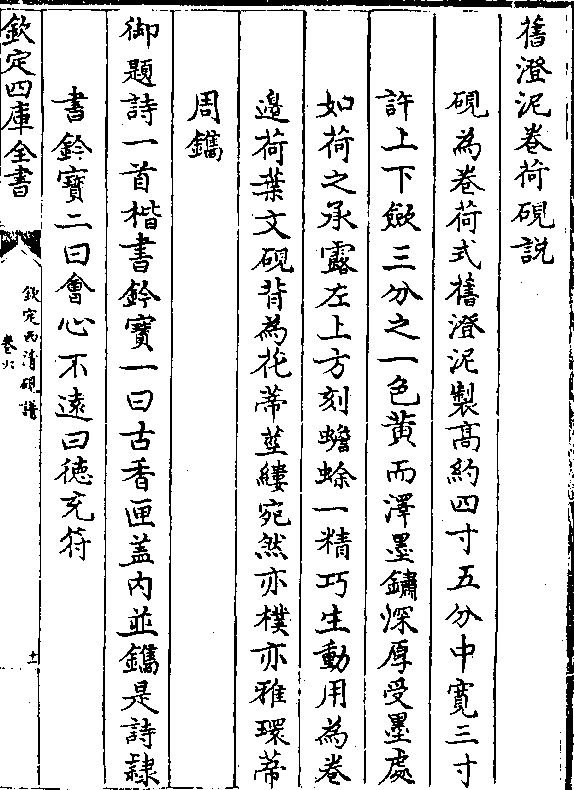 舊澄泥卷荷硯説
硯為卷荷式舊澄泥製髙約四寸五分中寛三寸
許上下歛三分之一色黄而澤墨鏽深厚受墨處
如荷之承露左上方刻蟾蜍一精巧生動用為卷
邉荷葉文硯背為花蒂莖縷宛然亦樸亦雅環蒂
周鐫
御題詩一首楷書鈐寶一曰古香匣盖内並鐫是詩隷
書鈐寶二曰㑹心不遠曰徳充符
欽定四庫全書
欽定西清硯譜
卷六
十一